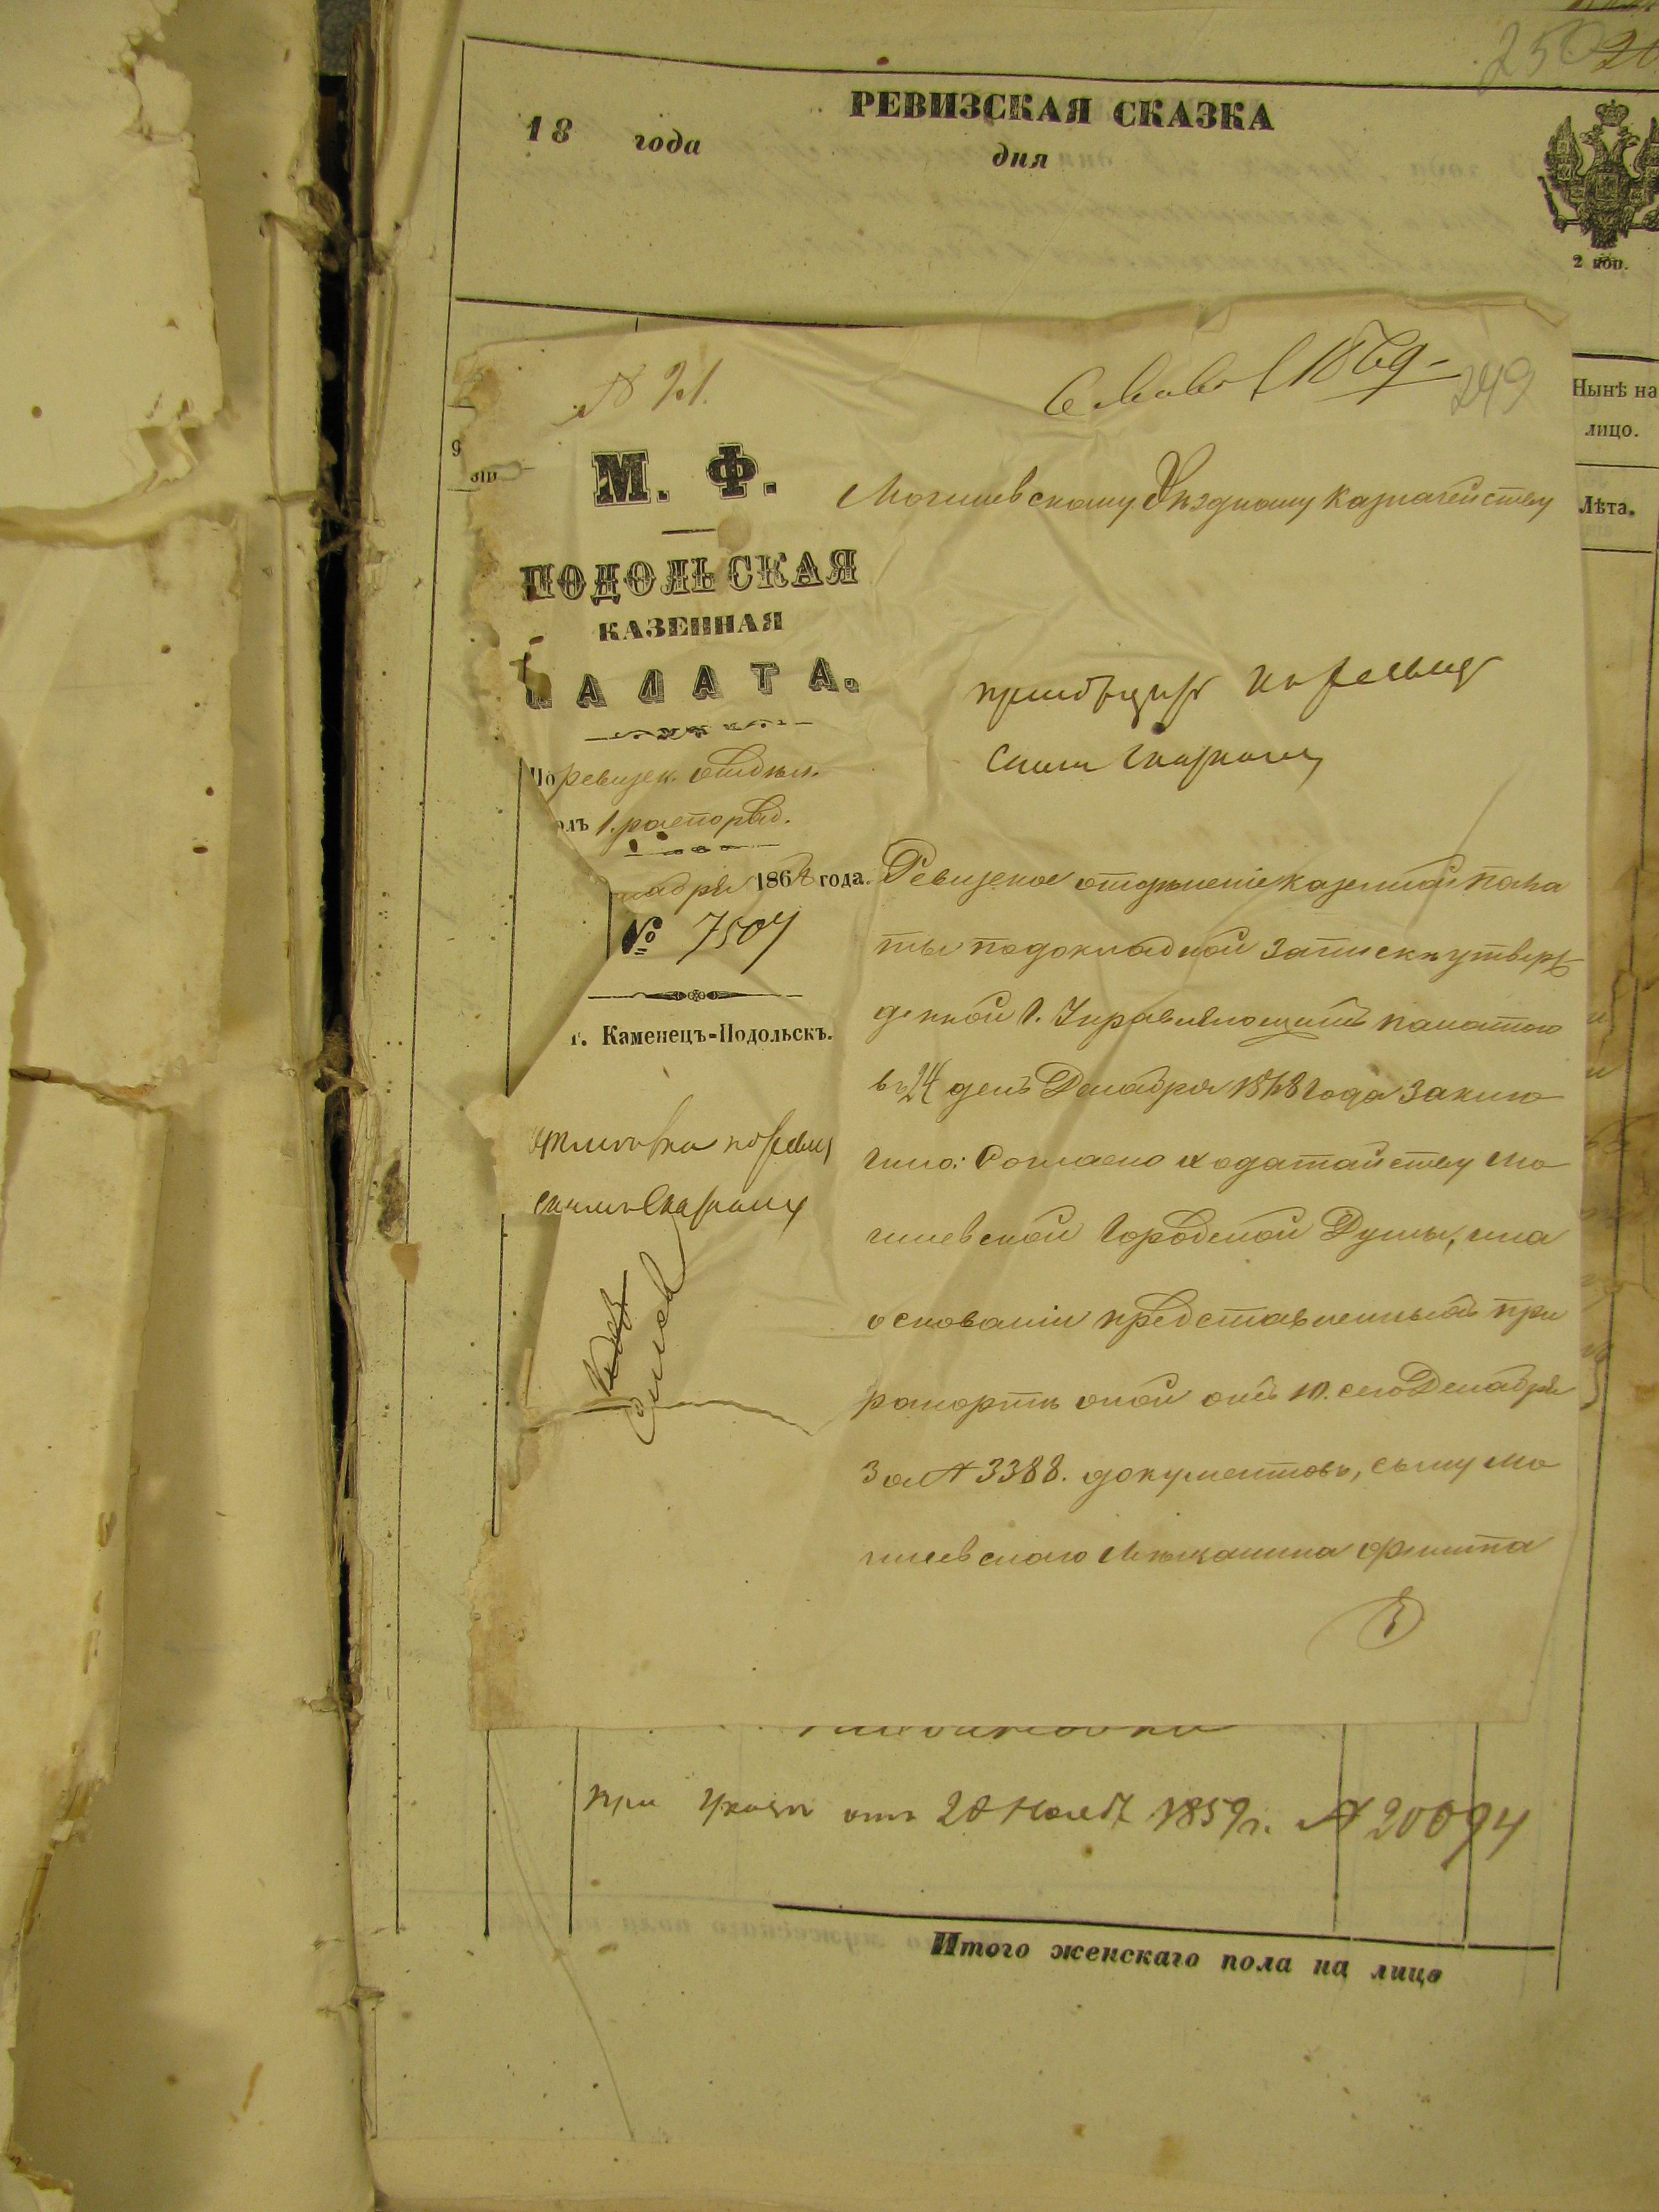 250
РЕВИЗСКАЯ СКАЗКА
18 года дня
2 коп.
Нынѣ на
лицо.
Лѣта.
№ 21.
1869
249
М. Ф.
ПОДОЛЬСКАЯ
КАЗЕННАЯ
ПАЛАТА.
По ревизск. отдѣл.
олъ 1. распоряд.
кабря 1868 года.
№ 7507
г. Каменецъ-Подольскъ.
Могилевскому Уѣздному Казначейству
приобщить къ ревиз
скимъ сказкамъ
Ревизское отдѣленіе казенной пала
ты по докладной запискѣ утверж
денной Г. Управляющимъ палатою
въ 24 день Декабря 1868 года заклю
чило: Согласно ходатайству Мо
гилевской Городской Думы, и на
основаніи представленныхъ при
рапортѣ оной отъ 10. сего Декабря
за № 3388. документовъ, сыну мо
гилевскаго Мѣщанина
при указѣ отъ 28 Нояб 1859 г. № 20094
Итого женскаго пола на лицо